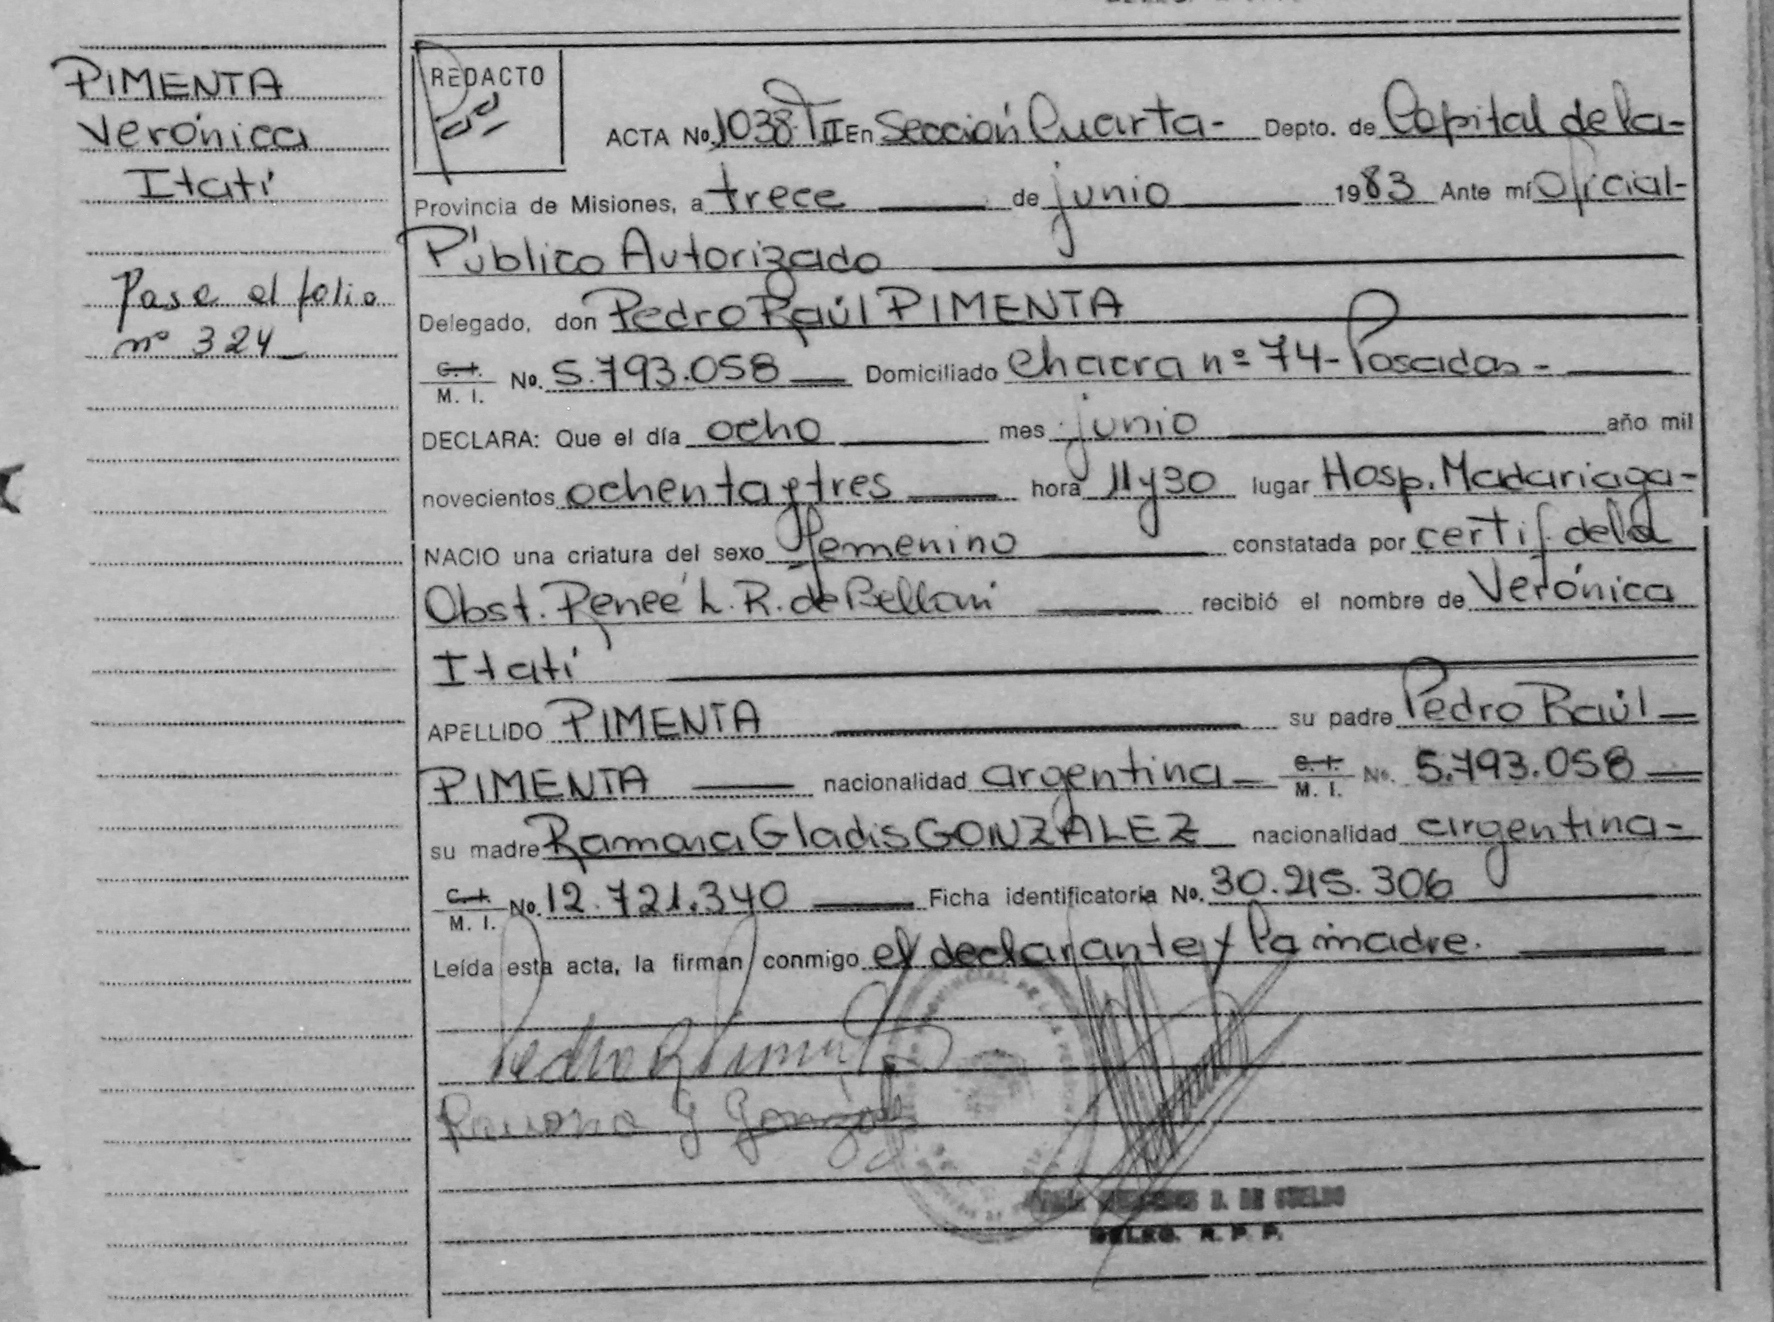 PIMENTA
Verónica
Itatí
Pase al folio
nº 324
REDACTO
ACTA No. 1038 TII En Sección Cuarta - Depto. de Capital de la -
Provincia de Misiones, a trece de junio 1983 Ante mí Oficial -
Público Autorizado
Delegado, don Pedro Raúl PIMENTA
C. I. M. I. No. 5.793.058 Domiciliado Chacra nº 74 - Posadas -
DECLARA: Que el día ocho mes junio año mil
novecientos ochenta y tres hora 11 y 30 lugar Hosp. Madariaga -
NACIO una criatura del sexo femenino constatada por certif. de la
Obst. Reneé L. R. de Belloni recibió el nombre de Verónica
Itatí
APELLIDO PIMENTA su padre Pedro Raúl
PIMENTA nacionalidad argentina C. I. M. I. No. 5.793.058
su madre Ramona Gladis GONZALEZ nacionalidad argentina -
C. I. M. I. No. 12.721.340 Ficha identificatoria No. 30.215.306
Leída esta acta, la firman conmigo el declarante y la madre.
Pedro R Piment
Ramona G Gonzalez
D. DE SUELDO
DELEG. R. P. P.